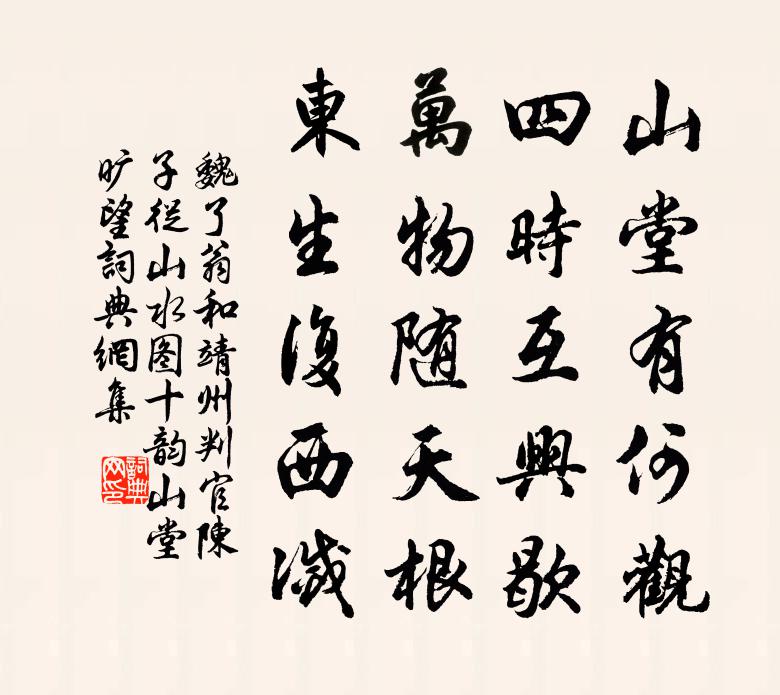 山堂有何觀
四時互興歇
萬物随天根
東生復西滅
魏了翁和靖州判官陳
子從山水图十韵山堂
旷望詞典網集
詞典
网印